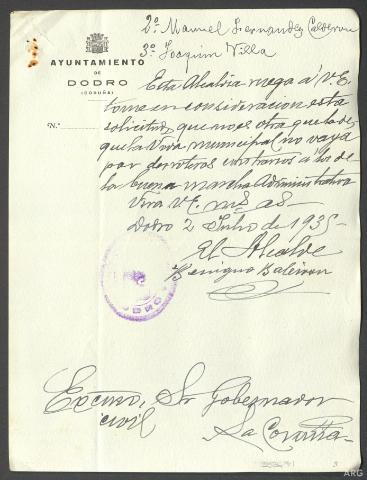 2º Manuel Fernandez Calderon
3º Joaquin Villa
AYUNTAMIENTO
DE
DODRO
(CORUÑA)
Nº
Esta Alcaldia ruega á V.E.
tome en consideracion esta
solicitud, que no es otra que la de
que la Vida municipal no vaya
por derroteros contrarios a los de
la buena marcha Administrativa
Viva V.E. ms as
Dodro 2 Julio de 1935-
El Alcalde
Excmo, Sr Gobernador
civil
La Coruña-
ARG